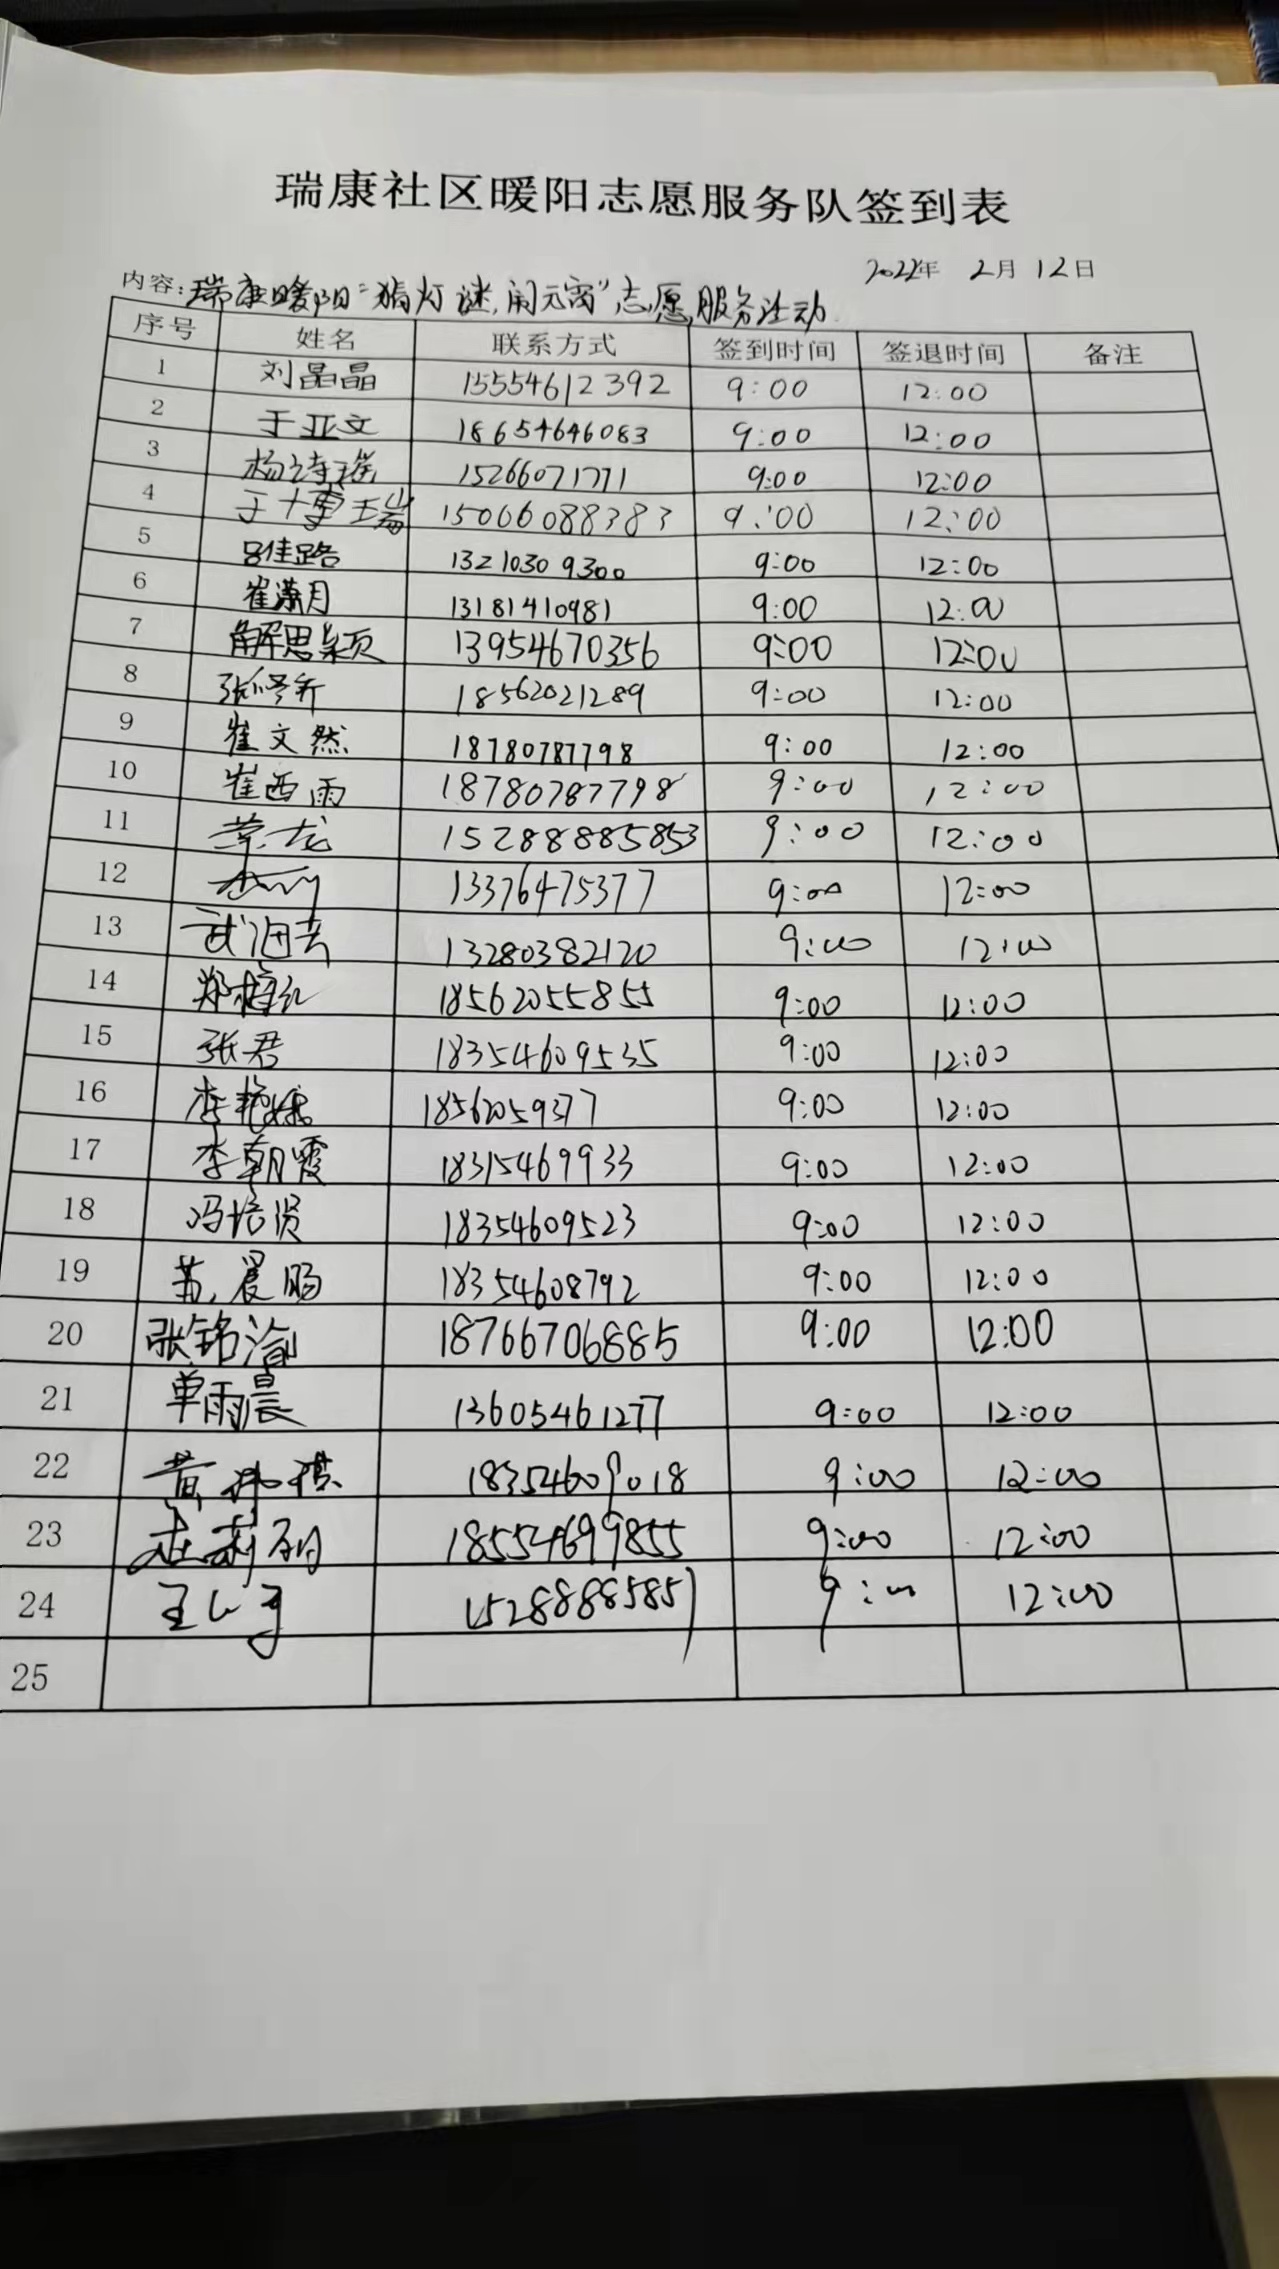 瑞康社区暖阳志愿服务队签到表
2022年 2月 12日
内容：瑞康暖阳“猜灯谜,闹元宵”志愿服务活动
序号 姓名 联系方式 签到时间 签退时间 备注
1 刘晶晶 15554612392 9:00 12:00
2 于亚文 18654646083 9:00 12:00
3 杨诗瑶 15266071771 9:00 12:00
4 于博瑞 15006088383 9:00 12:00
5 吕佳路 13210309300 9:00 12:00
6 崔潇月 13181410981 9:00 12:00
7 解思颖 13954670356 9:00 12:00
8 张修齐 18562021289 9:00 12:00
9 崔文然 18780787798 9:00 12:00
10 崔西雨 18780787798 9:00 12:00
11 15288885853 9:00 12:00
12 13376475377 9:00 12:00
13 13280382120 9:00 12:00
14 郑梅红 18562055855 9:00 12:00
15 张君 18354609535 9:00 12:00
16 李艳 18562059377 9:00 12:00
17 李朝霞 18315469933 9:00 12:00
18 冯培贤 18354609523 9:00 12:00
19 苗晨旸 18354608792 9:00 12:00
20 张铭渝 18766706885 9:00 12:00
21 单雨晨 13605461277 9:00 12:00
22 黄 18354609018 9:00 12:00
23 18554699855 9:00 12:00
24 王 15288885857 9:00 12:00
25